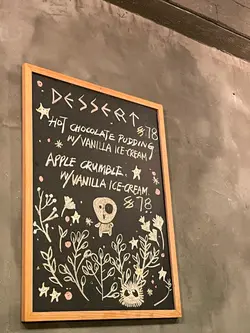 DESSERT
HOT CHOCOLATE PUDDING $78
W/VANILLA ICE-CREAM
APPLE CRUMBLE
W/VANILLA ICE-CREAM
$78